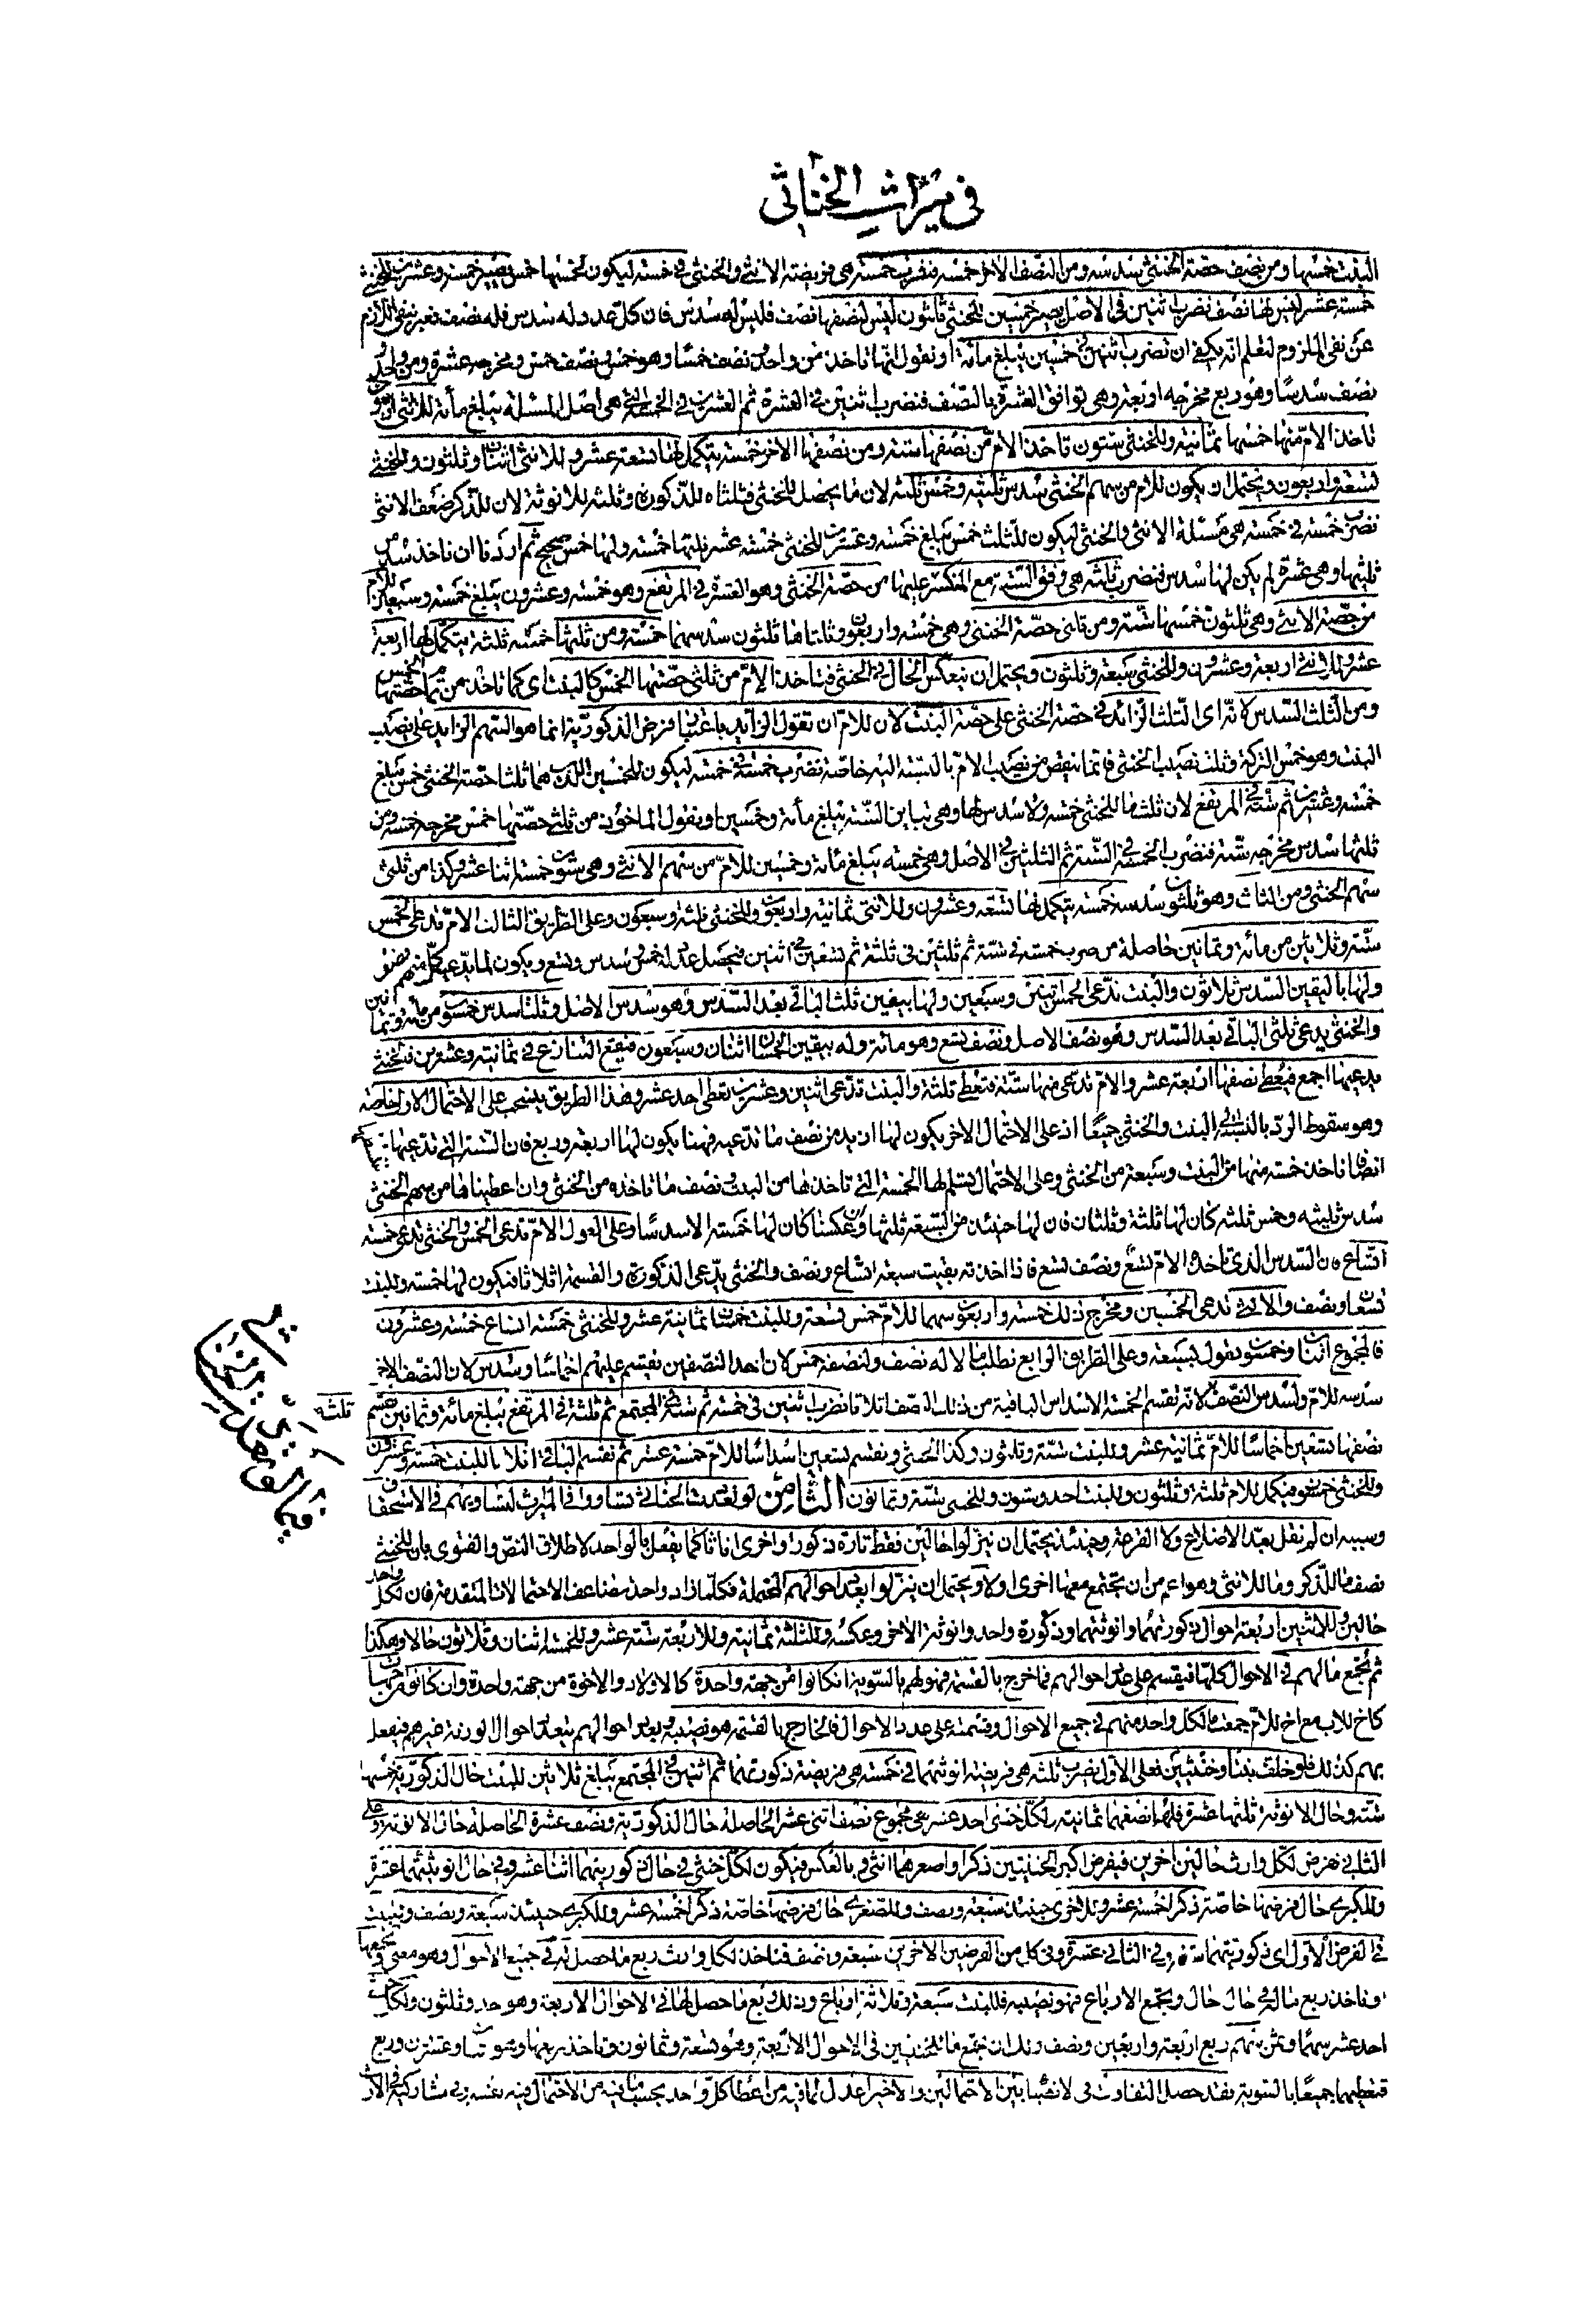 في ميراث الخناثى
البنت خمسها ومن نصف حصة الخنثى سدسه ومن النصف الاخر خمسه فنضرب خمسة هي فريضة الانثى والخنثى في خمسة ليكون لخمسها خمس يصير خمسة وعشرين للخنثى
خمسة عشر ليس لها نصف نضرب اثنين في الاصل يصير خمسين للخنثى ثلثون ليس لنصفها نصف فليس له سدس فان كل عدد له سدس فله نصف فعبر بنفي اللازم
عن نفي الملزوم لنعلم انه يكفي ان نضرب اثنين في خمسين يبلغ مائة او نقول انها تاخذ من واحد نصف خمسا وهو خمس ونصف خمس ومخرجه عشرة ومن واحد
نصف سدسا وهو ربع مخرجه اربعة وهي توافق العشرة بالنصف فنضرب اثنين في العشرة ثم العشرين في الخمسة التي هي اصل المسئلة يبلغ مأة للانثى اربعون
تاخذ الام منها خمسها ثمانية وللخنثى ستون تاخذ الام من نصفها ستة ومن نصفها الاخر خمسة يتكمل لها تسعة عشر وللانثى اثنان وثلثون وللخنثى
تسعة واربعون ويحتمل ان يكون للام من سهام الخنثى سدس ثلثيه وخمس ثلثه لان ما يحصل للخنثى فثلثاه للذكورة وثلثه للانوثة لان للذكر ضعف الانثى
نضرب خمسة في خمسة هي مسئلة الانثى والخنثى ليكون للثلث خمس يبلغ خمسة وعشرين للخنثى خمسة عشر ثلثها خمسة ولها خمس صحيح ثم اردنا ان ناخذ سدس
ثلثيها وهي عشرة لم يكن لها سدس فنضرب ثلثه هي وفق الستة مع المنكسر عليها من حصة الخنثى وهو العشرة في المرتفع وهو خمسة وعشرون يبلغ خمسة وسبعين للام
من حصة الانثى وهي ثلثون خمسها ستة ومن ثلثي حصة الخنثى وهي خمسة واربعون وثلثاها ثلثون سدسهما خمسة ومن ثلثها خمسه ثلثة يتكمل لها اربعة
عشر وللانثى اربعة وعشرون وللخنثى سبعة وثلثون ويحتمل ان ينعكس الحال في الخنثى فتاخذ الام من ثلثي حصتها الخمس كالبنت اي كما تاخذ من تمام حصتها الخمس
ومن الثلث السدس لانه اي الثلث الزائد في حصة الخنثى على حصة البنت لان للام ان تقول الزايد باعتبار فرض الذكورية انما هو السهم الزايد على نصيب
البنت وهو خمس التركة وثلث نصيب الخنثى فانما ينقص من نصيب الام بالنسبة اليه خاصة نضرب خمسة في خمسة ليكون للخمسين اللذين هما ثلثا حصة الخنثى خمس يبلغ
خمسة وعشرين ثم ستة في المرتفع لان ثلث ما للخنثى خمسة ولا سدس لها وهي تباين الستة يبلغ مأة وخمسين او نقول الماخوذ من ثلثي حصتها خمس مخرجه خمسة ومن
ثلثها سدس مخرجه ستة فنضرب الخمسة في الستة ثم الثلثين في الاصل وهي خمسة يبلغ مأة وخمسين للام من سهم الانثى وهي ستون خمسه اثنا عشر وكذا من ثلثي
سهم الخنثى ومن الثلث وهو ثلثون سدسه خمسة يتكمل لها تسعة وعشرون وللانثى ثمانية واربعون وللخنثى ثلثة وسبعون وعلى الطريق الثالث الام تدعي الخمس
ستة وثلاثين من مائة وثمانين حاصلة من ضرب خمسة في ستة ثم ثلثين في ثلثة ثم تسعين في اثنين فيحصل عدد له خمس وسدس وتسع ويكون لما يدعيه كل منهم نصف
ولها باليقين السدس ثلاثون والبنت تدعي الخمسين اثنين وسبعين ولها بيقين ثلث الباقي بعد السدس وهو سدس الاصل وثلثا سدس خمسون من مائة وثمانين
والخنثى يدعي ثلثي الباقي بعد السدس وهو نصف الاصل ونصف تسع وهو مائة وله بيقين الخمسان اثنان وسبعون فيقع التنازع في ثمانية وعشرين فالخنثى
يدعيها اجمع فيعطي نصفها اربعة عشر والام تدعي منها ستة فتعطى ثلثة والبنت تدعي اثنين وعشرين تعطى احد عشر وهذا الطريق ينسحب على الاحتمال الاول خاصة
وهو سقوط الرد بالنسبة الى البنت والخنثى جميعا اذ على الاحتمال الاخر يكون لها ازيد من نصف ما تدعيه فههنا يكون لها اربعة وربع فان الستة التي تدعيها
تاخذ خمسة منها من البنت وسبعة من الخنثى وعلى الاحتمال تسلم لها الخمسة التي تاخذها من البنت ونصف ما تاخذه من الخنثى وان اعطيناها من سهم الخنثى
سدس ثلثيه وخمس ثلثه كان لها ثلثة وثلثان فان لها حينئذ من السبعة ثلثها وان عكسنا كان لها خمسة الا سدسا وعلى العول الام تدعي الخمس والخنثى تدعي خمسة
اتساع فان السدس الذي تاخذه الام تسع ونصف تسع فاذا اخذته بقيت سبعة اتساع ونصف والخنثى يدعي الذكورة والقسمة اثلاثا فتكون لها خمسة وللبنت
تسعان ونصف والانثى تدعي الخمسين ومخرج ذلك خمسة واربعون سهما للام خمس تسعة وللبنت خمسان ثمانية عشر وللخنثى خمسة اتساع خمسة وعشرون
فالمجموع اثنان وخمسون بقول لسبعة وعلى الطريق الرابع نطلب ما لا له نصف ولنصفه خمس لان احد النصفين نقسم عليهم اخماسا وسدس لان النصف الاخر
سدسه للام ولسدس النصف ثلث لانه تقسم الخمسة الاسداس الباقية من ذلك النصف اثلاثا نضرب اثنين في خمسة ثم ستة في المجتمع ثم ثلثة في المرتفع يبلغ مائة وثمانين نقسم
ثلثه
نصفها تسعين اخماسا للام ثمانية عشر وللبنت ستة وثلثون وكذا الخنثى ونقسم تسعين اسداسا للام خمسة عشر ثم نقسم الباقي اثلاثا للبنت خمسة وعشرون
وللخنثى خمسون فيكمل للام ثلثة وثلثون وللبنت احد وستون وللخنثى ستة وثمانون الثامن لو تعددت الخناثى تساووا في الميراث لتساويهم في الاستحقاق
وسببه ان لم نقل بعد الاضلاع ولا القرعة وحينئذ يحتمل ان ينزلوا حالين فقط تارة ذكورا واخرى اناثا كما يفعل بالواحد لاطلاق النص والفتوى بان للخنثى
نصف ما للذكر وما للانثى وهو اعم من ان يجتمع معها اخرى اولا ويحتمل ان ينزلوا بعدد احوالهم المحتملة فكلما زاد واحد تضاعف الاحتمالات المتقدمة فان لكل واحد
حالين وللاثنين اربعة احوال ذكورتهما وانوثتهما وذكورة واحد وانوثة الاخر وعكسه وللثلثة ثمانية وللاربعة ستة عشر وللخمسة اثنان وثلاثون حالا وهكذا
ثم يجمع مالهم في الاحوال كلها فيقسم على عدد احوالهم فما خرج بالقسمة فهو لهم بالسوية ان كانوا من جهة واحدة كالاولاد والاخوة من جهة واحدة وان كانوا من جهات
كاخ للاب مع اخ للام جمعت ما لكل واحد منهم في جميع الاحوال وقسمته على عدد الاحوال فالخارج بالقسمة هو نصيبه وبعدد احوالهم يتعدد احوال الورثة غيرهم فيفعل
بهم كذلك فلو خلف بنتا وخنثيين فعلى الاول نضرب ثلثة هي فريضة انوثتهما في خمسة هي فريضة ذكورتهما ثم اثنين في المجتمع يبلغ ثلاثين للبنت حال الذكورية خمسها
ستة وحال الانوثة ثلثها عشرة فلها نصفهما ثمانية ولكل خنثى احد عشر هي مجموع نصف اثني عشر الحاصلة حال الذكورية ونصف عشرة الحاصلة حال الانوثة وعلى
الثاني نفرض لكل وارث حالين اخرين فيفرض اكبر الخنثيين ذكرا واصغرهما انثى وبالعكس فيكون لكل خنثى في حال ذكوريتهما اثنا عشر وفي حال انوثيتهما عشرة
وللكبرى حال فرضها خاصة ذكرا خمسة عشر وللاخرى حينئذ سبعة ونصف وللصغرى حال فرضها خاصة ذكرا خمسة عشر وللكبرى حينئذ سبعة ونصف وللبنت
في الفرض الاول اي ذكوريتهما ستة وفي الثاني عشرة وفي كل من الفرضين الاخرين سبعة ونصف فناخذ لكل وارث ربع ما حصل له في جميع الاحوال وهو معنى
او ناخذ ربع ماله في حال حال ويجمع الارباع فهو نصيبه فللبنت سبعة وثلاثة ارباع وذلك ربع ما حصل لها في الاحوال الاربعة وهو احد وثلثون ولكل خنثى
احد عشر سهما وثمن سهم ربع اربعة واربعين ونصف ولك ان تجمع ما للخنثيين في الاحوال الاربعة وهو تسعة وثمانون وتاخذ ربعها وهو اثنان وعشرون وربع
فتعطيهما جميعا بالسوية فقد حصل التفاوت في الانصباء بين الاحتمالين والاخير اعدل لما فيه من اعطاء كل واحد بحسب ما فيه من الاحتمال فيه نفسه وفي مشاركيه في الارث